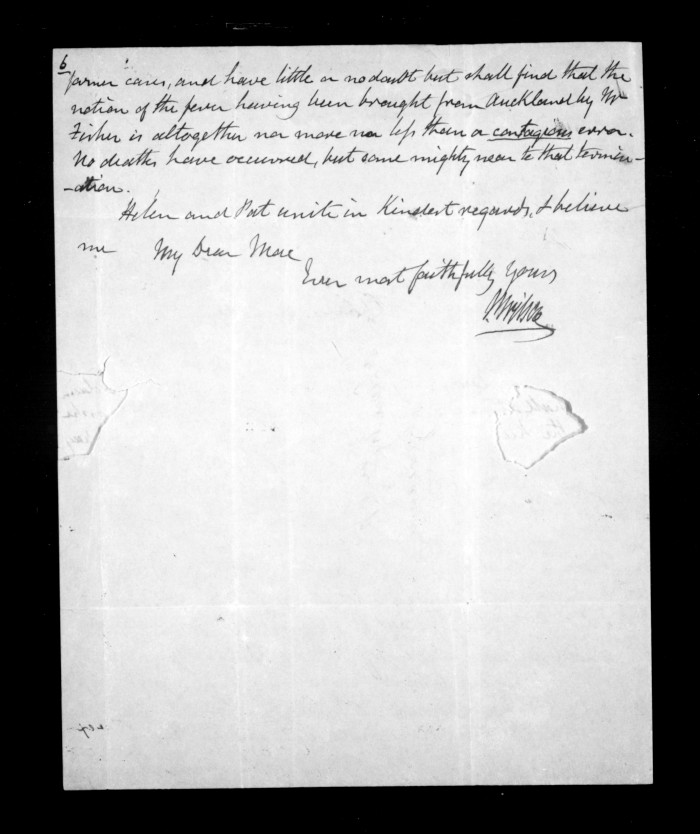 6
former cases, and have little or no doubt but shall find that the
notion of the fever having been brought from Auckland by Mr
Fisher is altogether nor more nor less than a contagious error.
No deaths have occurred, but some mighty near to that termin-
-ation.
Helen and Pat unite in Kindest regards, & believe
me My Dear Mac
Ever most faithfully Yours